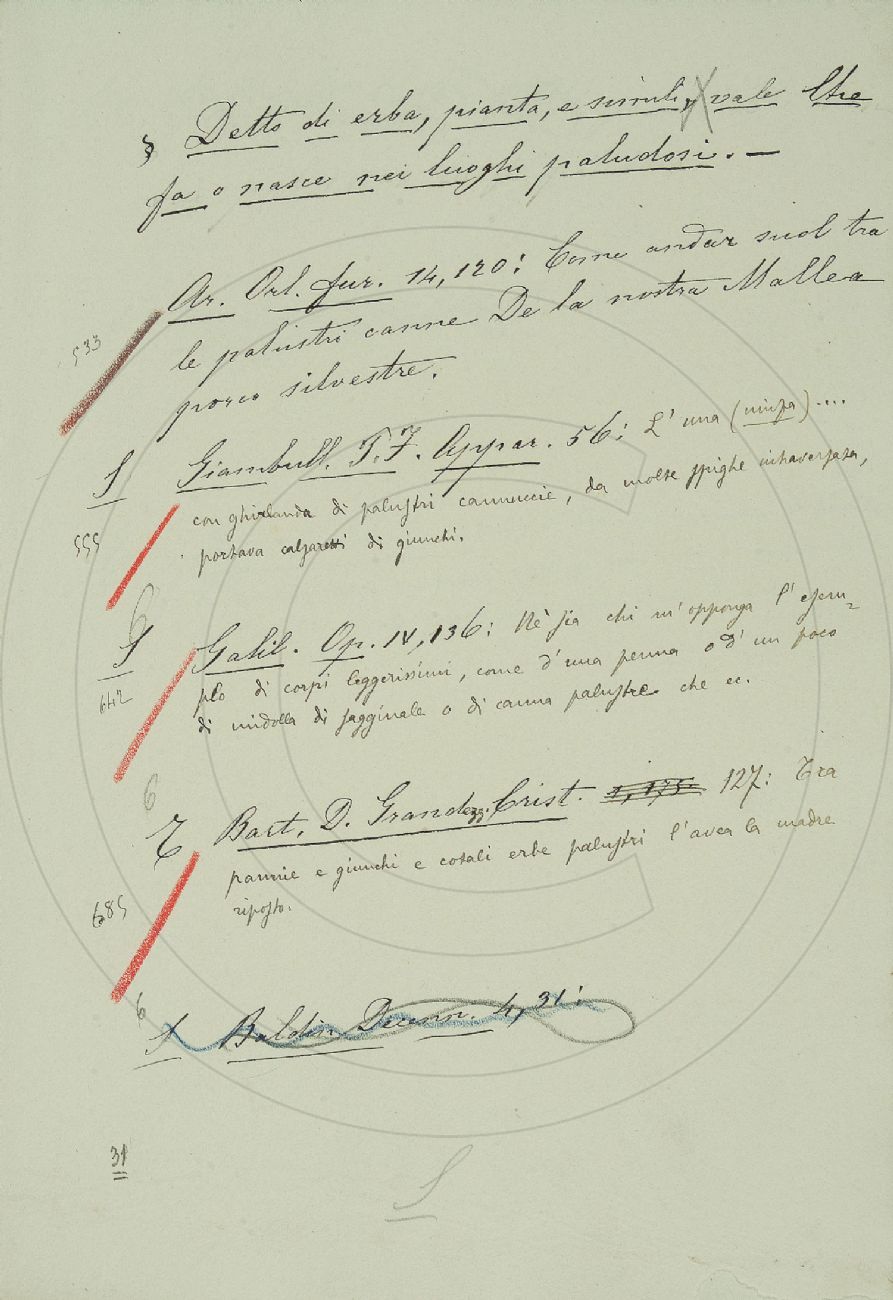 § Detto di erba, pianta, e simili, vale Che
fa o nasce nei luoghi paludosi. —
Ar. Orl. fur. 14, 120: Come andar suol tra
533
le palustri canne De la nostra Mallea
porco silvestre.
S Giambull. P. F. Appar. 56: L' una (ninfa)....
con ghirlanda di palustri cannuccie, da molte spighe intraversata,
555
portava calzaretti di giunchi.
6
S Galil. Op. 14, 136: Nè sia chi m' opponga l' esem-
plo di corpi leggerissimi, come d' una penna o d' un poco
642
di midolla di sagginale o di canna palustre che ec.
6
T Bart. D. Grandezz. Crist. 1, 175. 127: Tra
pannie e giunchi e cotali erbe palustri l' avea la madre
685
riposto.
6
S Baldin. Decenn. 4, 31:
31
S